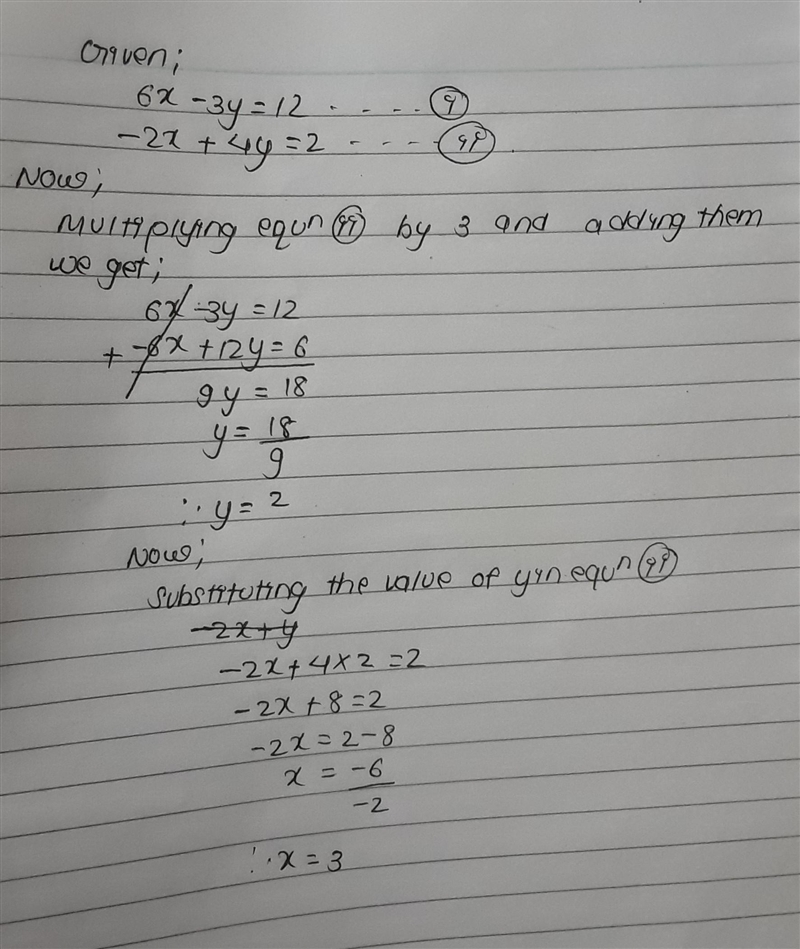 Given;
6x - 3y = 12 - - - - (i)
-2x + 4y = 2 - - - - (ii)
Now;
Multiplying equn (ii) by 3 and adding them
we get;
6x - 3y = 12
+ -6x + 12y = 6
9y = 18
y = 18/9
∴ y = 2
Now;
Substituting the value of y in equn (ii)
-2x + y
-2x + 4 × 2 = 2
-2x + 8 = 2
-2x = 2 - 8
x = -6/-2
∴ x = 3